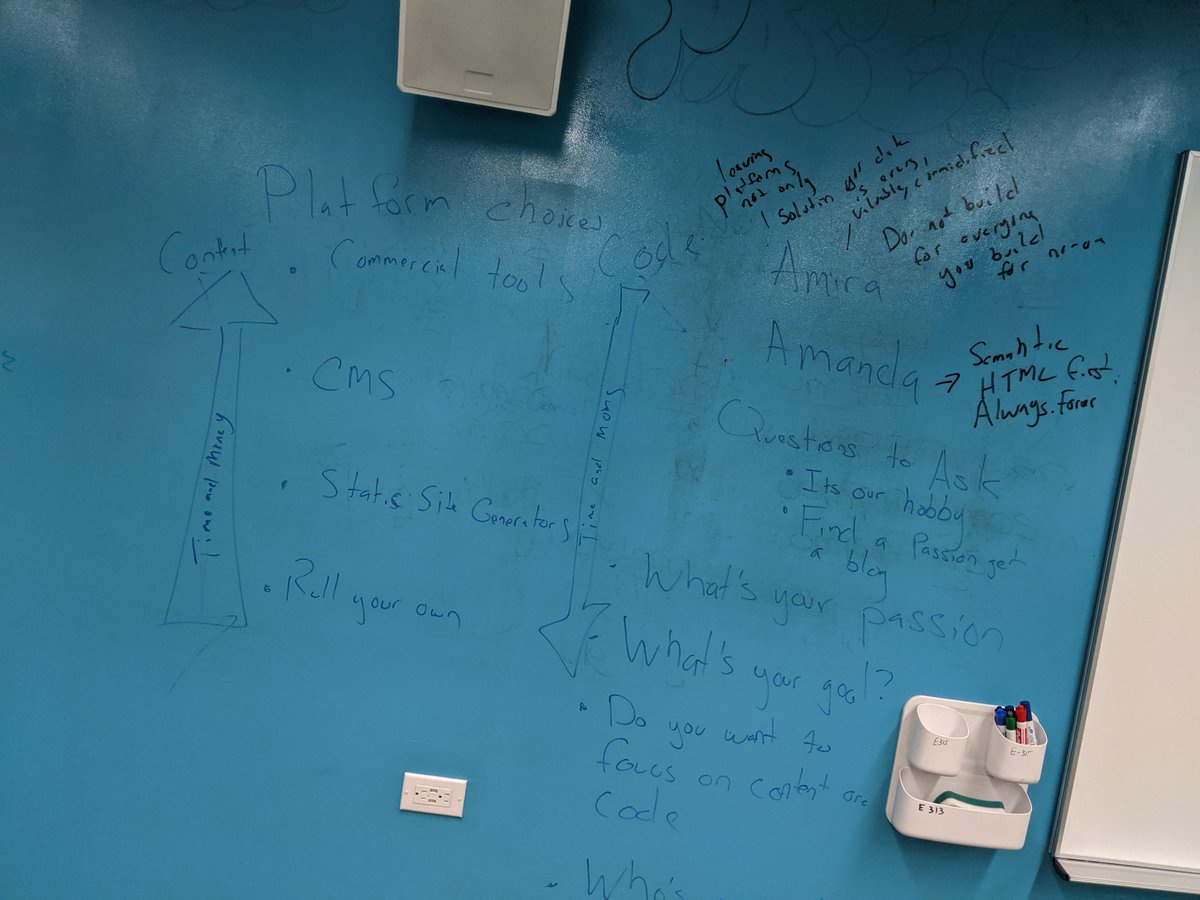 Platform choices
Content
Code
• Commercial tools
• CMS
• Static Site Generators
• Roll your own
Time and Money
Time and Mony
leaving
platforms
not only
1 Solution
is
valuable, commidified
Do not build
for everyone
you build
for no-on
Amira
Amanda
→ Semantic
HTML first.
Always. Forever
Questions to Ask
• Its our hobby
• Find a Passion get
a blog
• What's your passion
• What's your goal?
• Do you want to
focus on content ore
code
• Who's
E315
E-315
E 313